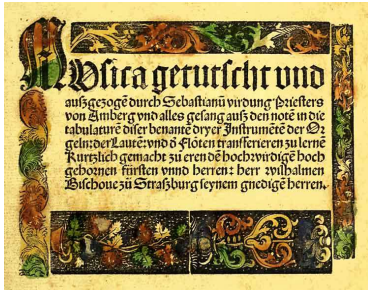 Musica getutscht vnd
außgezogē durch Sebastianū virdung Priesters
von Amberg vnd alles gesang auß den notē in die
tabulaturē diser benantē dryer Instrumētē der Or
geln: der Lautē: vnd d̄ Flöten transferieren zu lernē
Kurtzlich gemacht zu eren dē hochwirdigē hoch
gebornen fürsten vnnd herren: herr wilhalmen
Bischoue zů Straßburg seynem gnedigē herren.